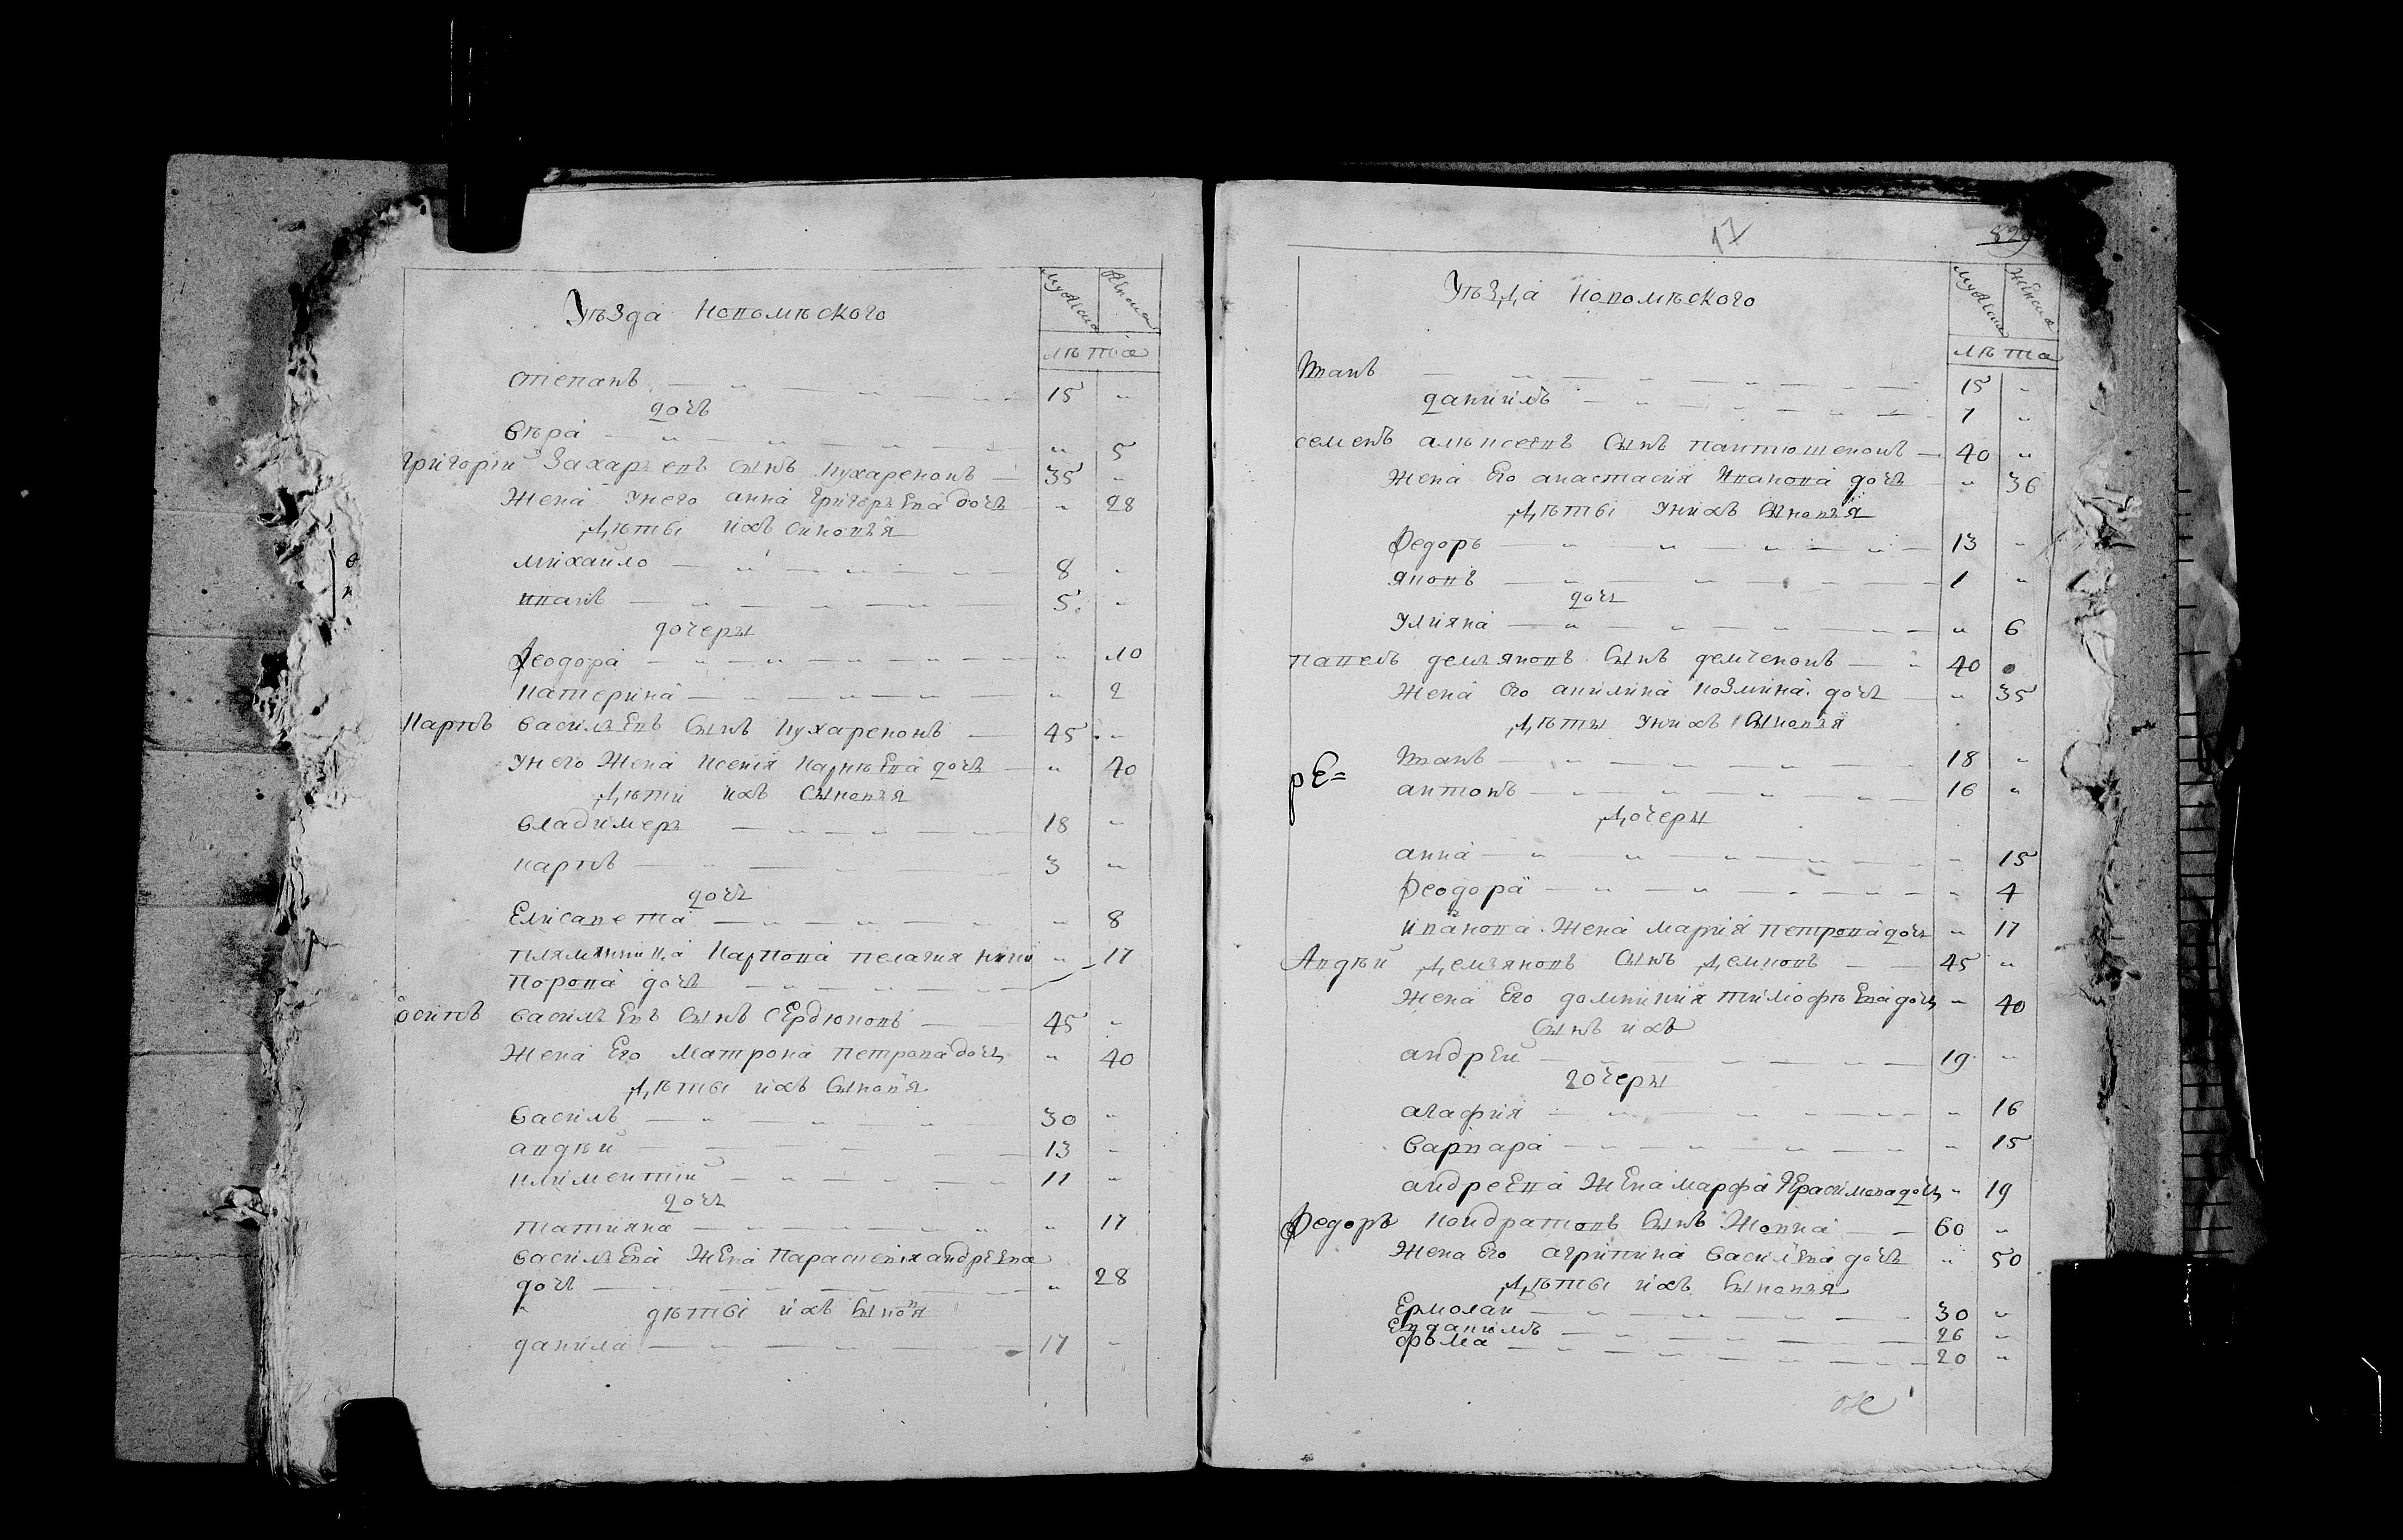 Уѣзда Новомѣского
Мужеска
Женска
лѣта
степанъ 15 "
дочъ
вѣра " 5
Григорій Захаръевъ сынъ кухареновъ 35 "
Жена Унего анна Григоръева дочъ " 28
Дѣтві ихъ синовъя
михайло 8 "
иванъ 5 "
дочеры
феодора " 10
катерина " 2
Карпъ василъевъ сынъ кухареновъ 45 "
Унего Жена ксенія Карпѣева дочъ " 40
Дѣти ихъ сыновъя
владимеръ 18 "
карпъ 3 "
дочъ
Елисавета " 8
плямянница Карпова пелагия ники " 17
Порова дочъ
осипъ василъевъ сынъ сердюковъ 45 "
Жена Его матрона петрова дочъ " 40
Дѣтві ихъ сыновя
василь 30 "
андѣй 13 "
климентій 11 "
дочъ
татияна " 17
василъева жена Параскевія андрѣева
дочъ " 28
дѣтві ихъ сыновя
данила 17 "
17
829
Уѣзда новомѣского
Мужеска
Женска
лѣта
Иванъ 15 "
даниилъ 7 "
семенъ алѣксеевъ сынъ пантюшеновъ 40 "
Жена Его анастасия Иванова дочъ " 36
Дѣтві унихъ сыновъя
федоръ 13 "
яковъ 1 "
дочъ
Улияна " 6
павелъ демъяновъ сынъ демченовъ 40
Жена Его акилина козмина дочъ " 35
Дѣты унихъ сыновъя
рЕ=
Иванъ 18 "
антонъ 16 "
Дочеры
анна " 15
феодора " 4
иванова Жена мария петрова дочъ " 17
Андѣй Демъяновъ сынъ Демковъ 45 "
Жена Его домникия тимофѣева дочъ " 40
сынъ ихъ
андрей 19 "
дочеры
агафия " 16
варвара " 15
андреева жена марфа Герасимова дочъ " 19
федоръ кондратовъ сынъ Жовна 60 "
Жена Его агрипина василѣва дочъ " 50
Дѣтві ихъ сыновъя
Ермолай 30 "
Ев данилъ 26 "
фома 20 "